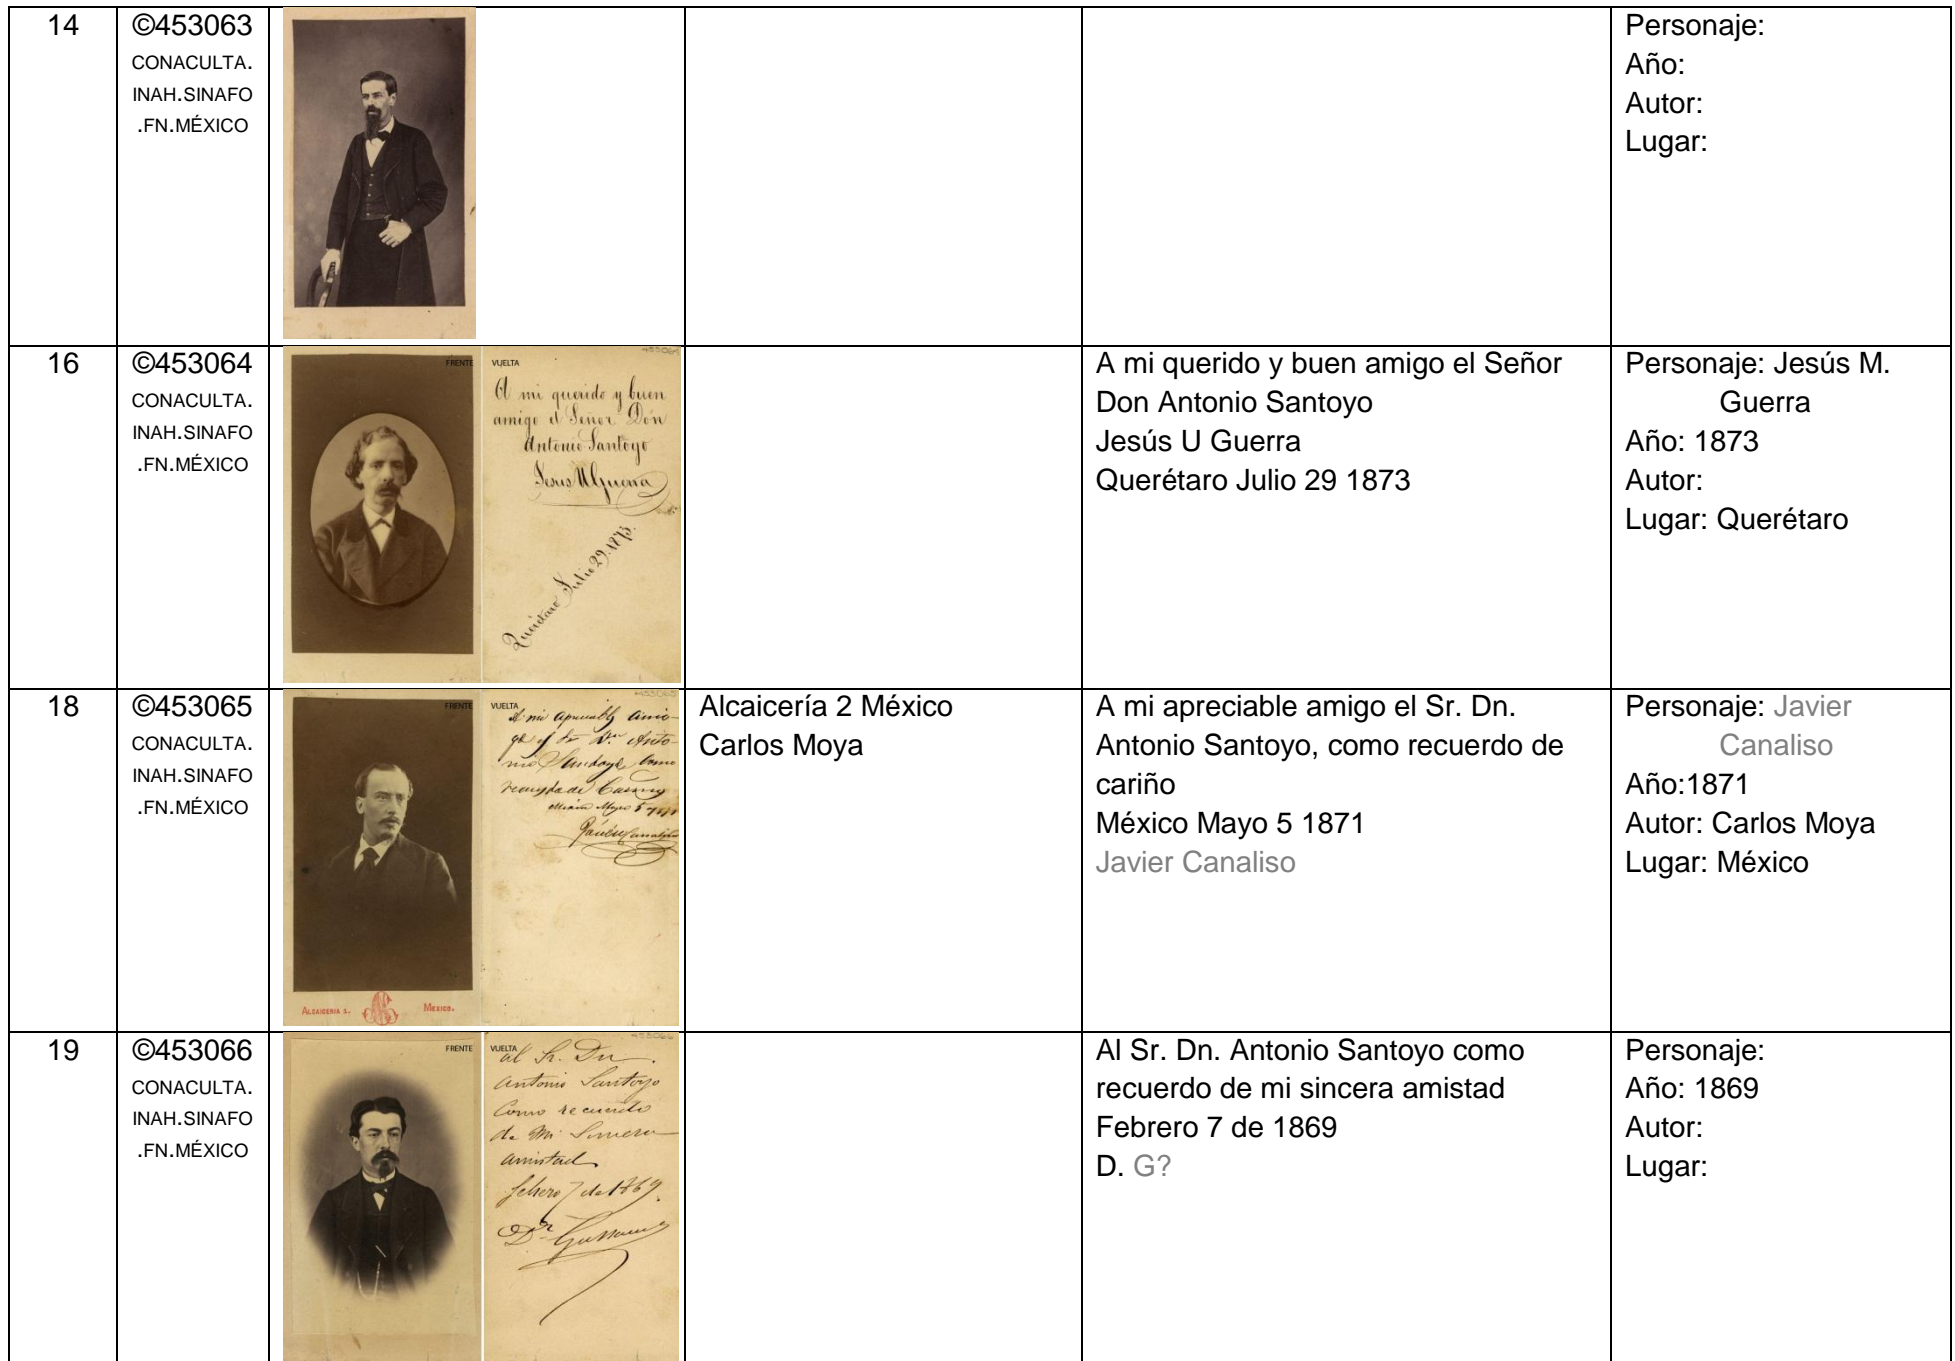 14
©453063
CONACULTA.
INAH.SINAFO
.FN.MÉXICO
Personaje:
Año:
Autor:
Lugar:
16
©453064
CONACULTA.
INAH.SINAFO
.FN.MÉXICO
FRENTE
VUELTA
453064
A mi querido y buen
amigo el Señor Don
Antonio Santoyo
Jesus M Guerra
Querétaro Julio 29. 1873.
A mi querido y buen amigo el Señor
Don Antonio Santoyo
Jesús U Guerra
Querétaro Julio 29 1873
Personaje: Jesús M.
Guerra
Año: 1873
Autor:
Lugar: Querétaro
18
©453065
CONACULTA.
INAH.SINAFO
.FN.MÉXICO
FRENTE
ALCAICERIA 2.
MEXICO.
VUELTA
453065
A mi apreciable ami-
go el Sr. Dn. Anto-
nio Santoyo, como
recuerdo de
Mexico Mayo 5
Alcaicería 2 México
Carlos Moya
A mi apreciable amigo el Sr. Dn.
Antonio Santoyo, como recuerdo de
cariño
México Mayo 5 1871
Javier Canaliso
Personaje: Javier
Canaliso
Año:1871
Autor: Carlos Moya
Lugar: México
19
©453066
CONACULTA.
INAH.SINAFO
.FN.MÉXICO
FRENTE
VUELTA
453066
al Sr. Dn.
Antonio Santoyo
Como recuerdo
de Mi Sincera
amistad
febrero 7 de 1869.
Al Sr. Dn. Antonio Santoyo como
recuerdo de mi sincera amistad
Febrero 7 de 1869
D. G?
Personaje:
Año: 1869
Autor:
Lugar: